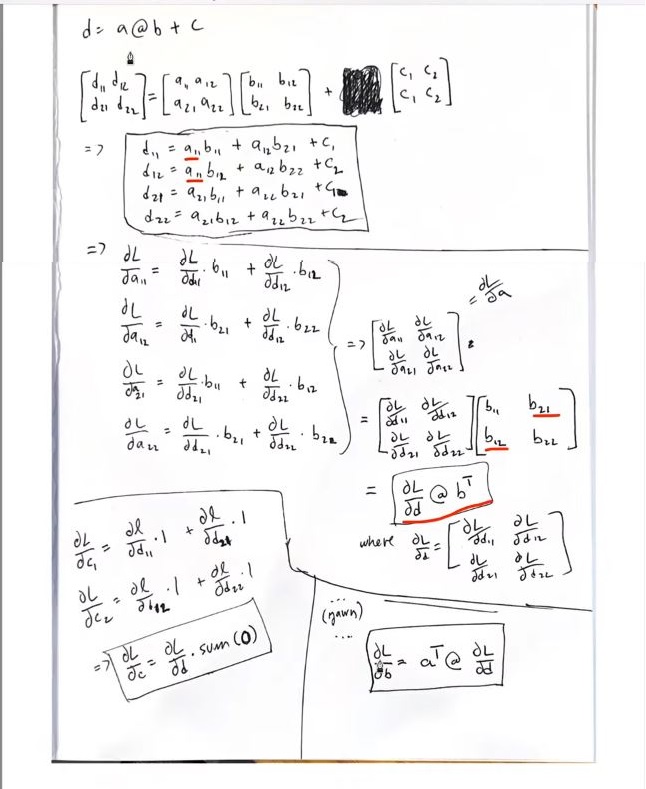 d = a @ b + c
[d₁₁ d₁₂; d₂₁ d₂₂] = [a₁₁ a₁₂; a₂₁ a₂₂] [b₁₁ b₁₂; b₂₁ b₂₂] + [c₁ c₂; c₁ c₂]
=> d₁₁ = a₁₁b₁₁ + a₁₂b₂₁ + c₁
d₁₂ = a₁₁b₁₂ + a₁₂b₂₂ + c₂
d₂₁ = a₂₁b₁₁ + a₂₂b₂₁ + c₁
d₂₂ = a₂₁b₁₂ + a₂₂b₂₂ + c₂
=> ∂L/∂a₁₁ = ∂L/∂d₁₁ · b₁₁ + ∂L/∂d₁₂ · b₁₂
∂L/∂a₁₂ = ∂L/∂d₁ · b₂₁ + ∂L/∂d₁₂ · b₂₂
∂L/∂a₂₁ = ∂L/∂d₂₁ · b₁₁ + ∂L/∂d₂₂ · b₁₂
∂L/∂a₂₂ = ∂L/∂d₂₁ · b₂₁ + ∂L/∂d₂₂ · b₂₂
= ∂L/∂a
=> [∂L/∂a₁₁ ∂L/∂a₁₂; ∂L/∂a₂₁ ∂L/∂a₂₂]
= [∂L/∂d₁₁ ∂L/∂d₁₂; ∂L/∂d₂₁ ∂L/∂d₂₂] [b₁₁ b₂₁; b₁₂ b₂₂]
= ∂L/∂d @ bᵀ
where ∂L/∂d = [∂L/∂d₁₁ ∂L/∂d₁₂; ∂L/∂d₂₁ ∂L/∂d₂₂]
∂L/∂c₁ = ∂l/∂d₁₁ · 1 + ∂l/∂d₂₁ · 1
∂L/∂c₂ = ∂l/∂d₁₂ · 1 + ∂l/∂d₂₂ · 1
=> ∂L/∂c = ∂L/∂d . sum(0)
... (yawn) ...
∂L/∂b = aᵀ @ ∂L/∂d